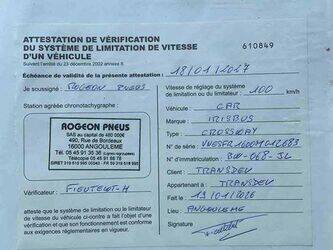 ATTESTATION DE VÉRIFICATION
DU SYSTÈME DE LIMITATION DE VITESSE
D'UN VÉHICULE
610849
Suivant l'arrêté du 23 décembre 2002 annexe 8
Échéance de validité de la présente attestation : 18/01/2027
Je soussigné : ROGEON PNEUS
Vitesse de réglage du système
de limitation de vitesse : 100 km/h
Station agréée chronotachygraphe :
Véhicule : CAR
Marque : IRISBUS
Type : CROSSWAY
N° Série :
N° d'immatriculation :
Client : TRANSDEV
Appartenant à : TRANSDEV
Fait le : 19/01/2026
Lieu : ANGOULEME
Signature :
ROGEON PNEUS
SAS au capital de 480 000€
490, Rue de Bordeaux
16000 ANGOULEME
Tél. 05 45 91 35 36
Télécopie 05 45 91 68 78
Vérificateur :
atteste que le système de limitation ou le limiteur
de vitesse du véhicule ci-contre a fait l'objet d'une
vérification et que son fonctionnement est conforme
aux exigences réglementaires en vigueur.